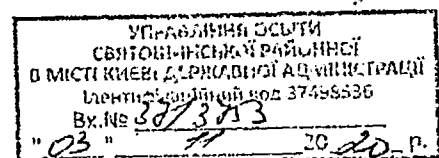 УПРАВЛІННЯ ОСВІТИ
СВЯТОШИНСЬКОЇ РАЙОННОЇ
В МІСТІ КИЄВІ ДЕРЖАВНОЇ АДМІНІСТРАЦІЇ
Ідентифікаційний код 37498536
Вх.№
" 03 " 11 20 20 р.